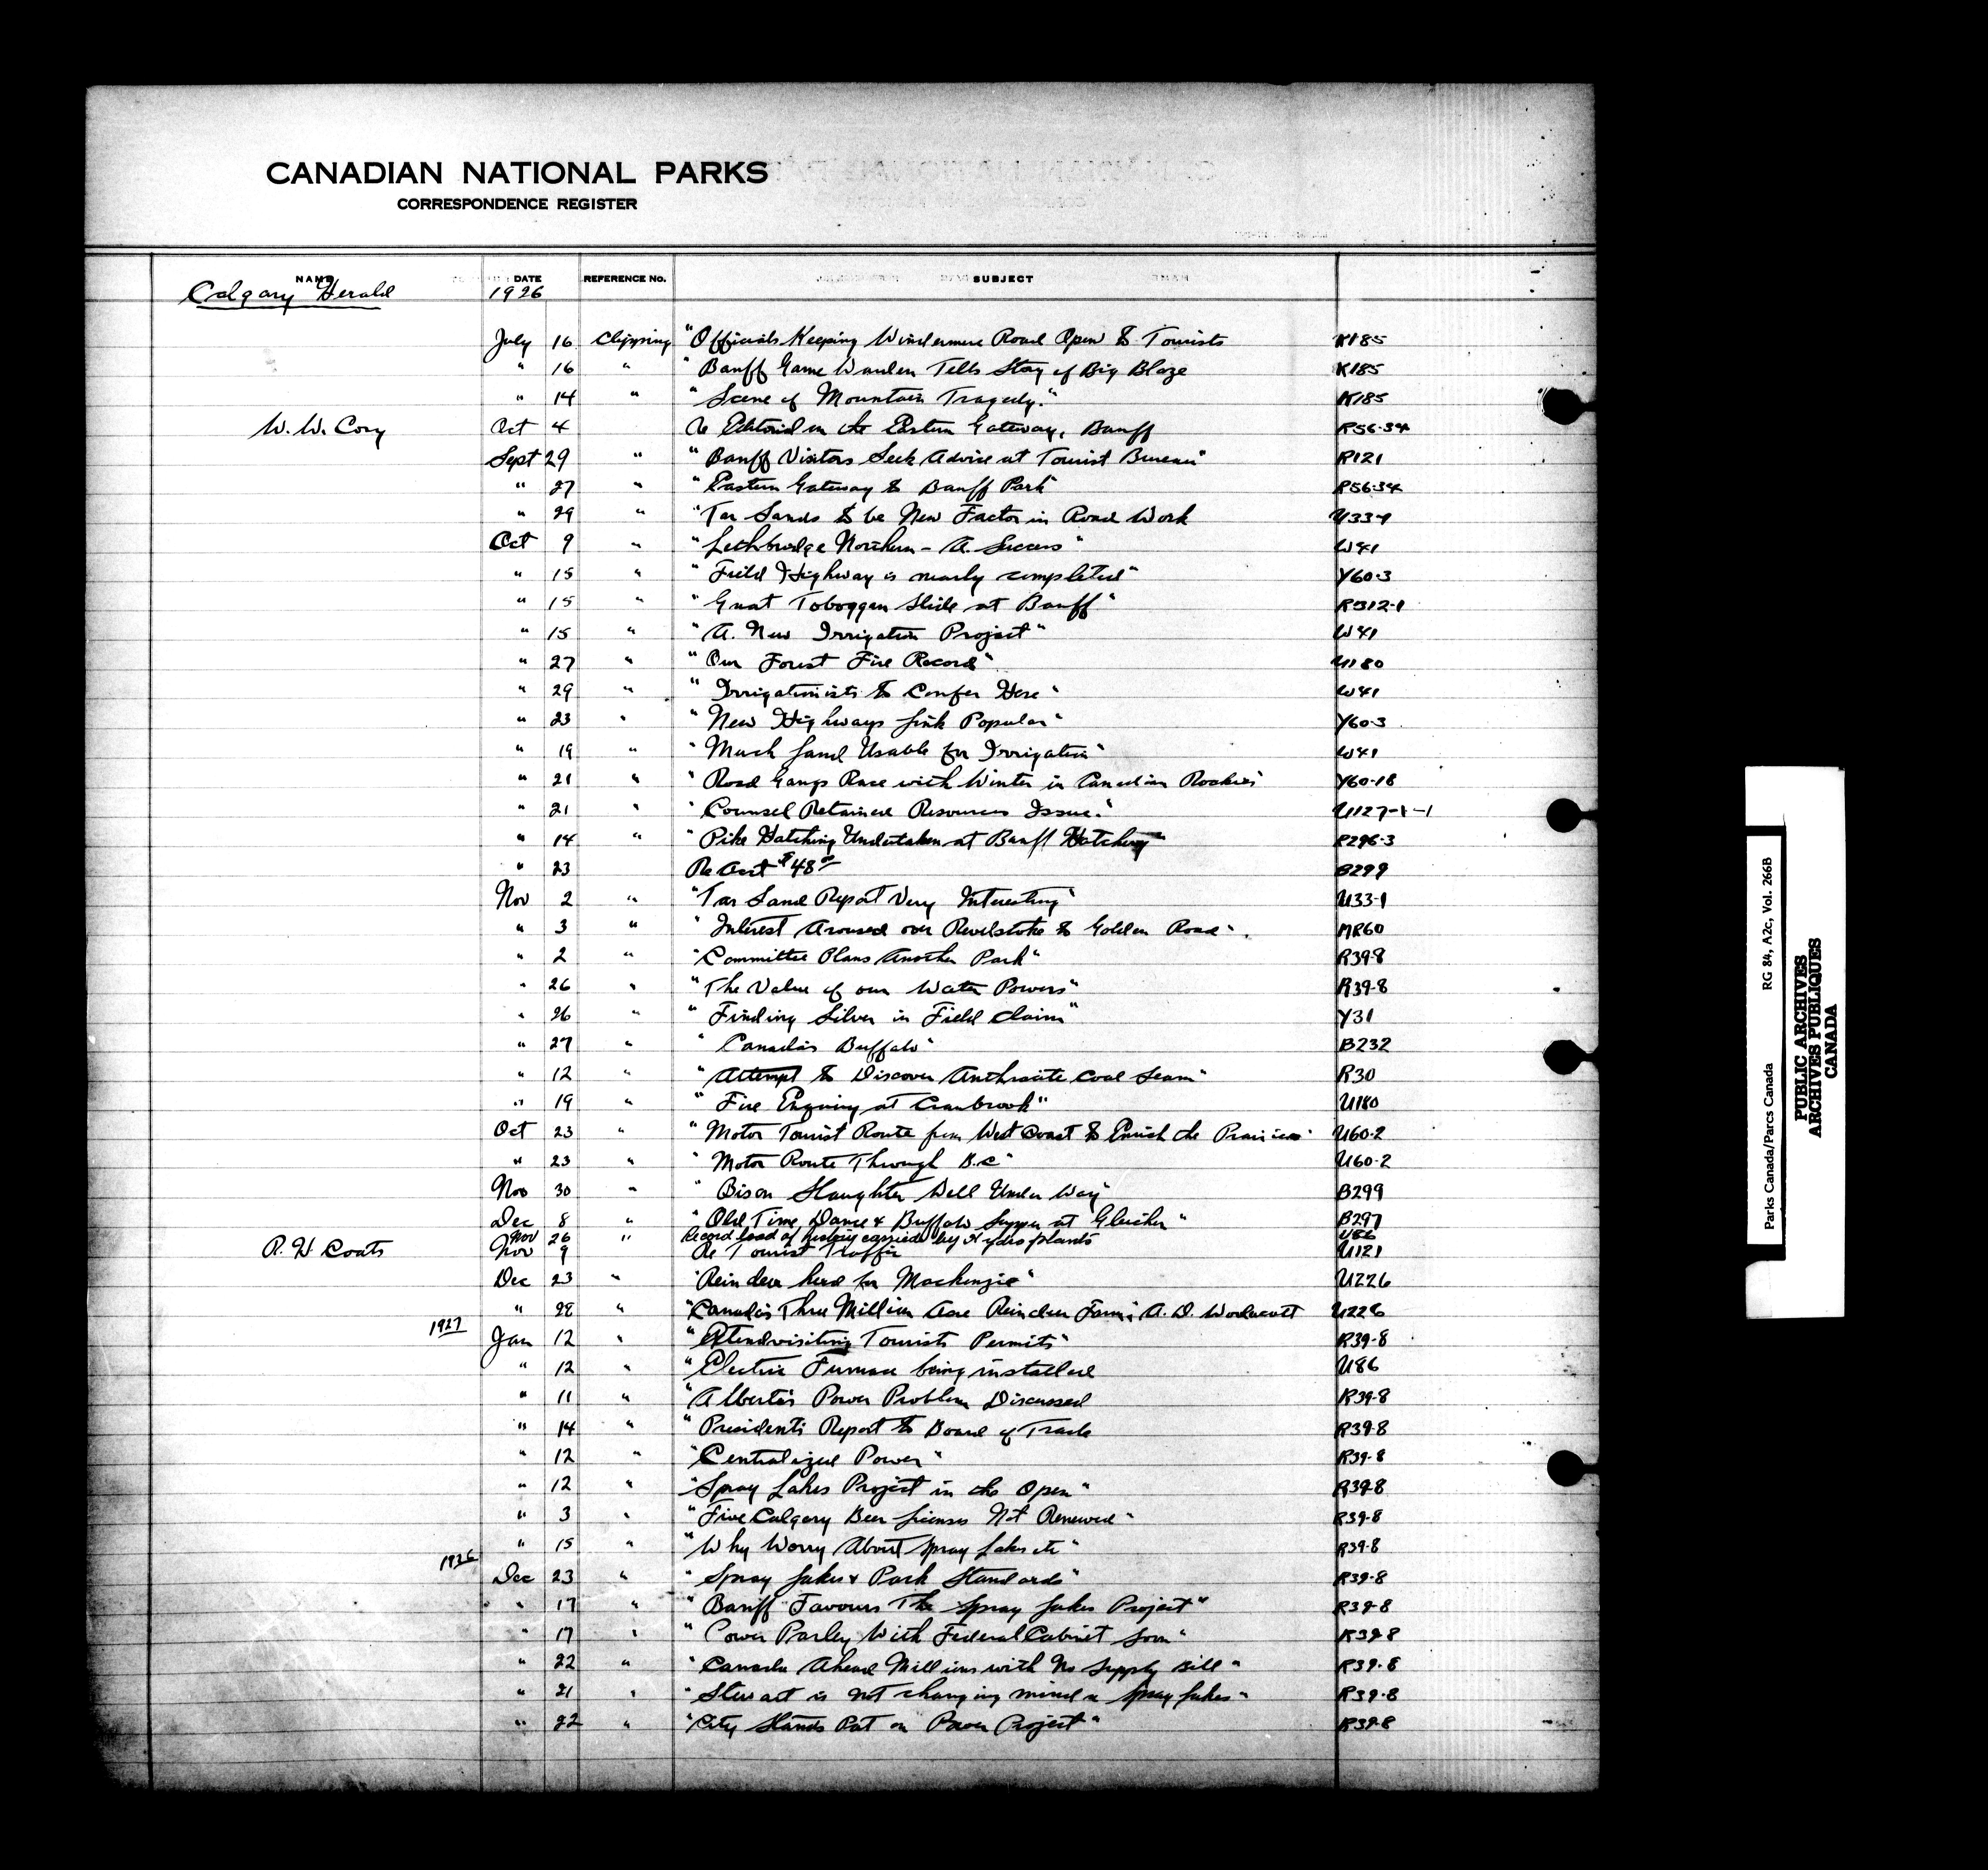 CANADIAN NATIONAL PARKS
CORRESPONDENCE REGISTER
NAME DATE REFERENCE No. SUBJECT
Calgary Herald 1926
July 16 Clipping "Officials Keeping Windermere Road Open to Tourists K185
" 16 " "Banff Game Warden Tells Story of Big Blaze K185
" 14 " "Scene of Mountain Tragedy." K185
W. W. Cory Oct 4 Re Editorial on the Eastern Gateway, Banff R56-34
Sept 29 " "Banff Visitors Seek Advice at Tourist Bureau" R121
" 27 " "Eastern Gateway to Banff Park" R56-34
" 29 " "Tar Sands to be New Factor in Road Work U33-1
Oct 9 " "Lethbridge Northern - A. Success" W41
" 15 " "Field Highway is nearly completed" Y60-3
" 15 " "Great Toboggan Slide at Banff" R312-1
" 15 " "A. New Irrigation Project" W41
" 27 " "Our Forest Fire Record" U180
" 29 " "Irrigationists to Confer Here" W41
" 23 " "New Highways Link Popular" Y60-3
" 19 " "Much Land Usable for Irrigation" W41
" 21 " "Road Gangs Race with Winter in Canadian Rockies" Y60-18
" 21 " "Counsel Retained Resources Issue." U127-1-1
" 14 " "Pike Hatching Undertaken at Banff Hatchery" R296-3
" 23 Re Acct $48 B299
Nov 2 " "Tar Sand Report Very Interesting" U33-1
" 3 " "Interest Aroused over Revelstoke to Golden Road". MR60
" 2 " "Committee Plans Another Park" R39-8
" 26 " "The Value of our Water Powers" R39-8
" 26 " "Finding Silver in Field Claim" Y31
" 27 " "Canada's Buffalo" B232
" 12 " "Attempt to Discover Anthracite Coal Seam" R30
" 19 " "Fire Enquiry at Cranbrook" U180
Oct 23 " "Motor Tourist Route from West Coast to Enrich the Prairies" U60-2
" 23 " "Motor Route Through B.C" U60-2
Nov 30 " "Bison Slaughter Well Under Way" B299
Dec 8 " "Old Time Dance & Buffalo Supper at Gleichen" B297
Nov 26 " Record load of history carried by Hydro plants U86
R. H Coats Nov 9 Re Tourist Traffic U121
Dec 23 " "Reindeer herd for Mackenzie" U226
" 28 " "Canada's Three Million Acre Reindeer Farm", A. D. U226
1927 Jan 12 " Tourists Permits" R39-8
" 12 " "Electric Furnace being installed U86
" 11 " "Alberta's Power Problem Discussed R39-8
" 14 " "Presidents Report to Board of Trade R39-8
" 12 " "Centralized Power" R39-8
" 12 " "Spray Lakes Project in the Open" R39-8
" 3 " "Five Calgary Beer Licenses Not Renewed" R39-8
" 15 " "Why Worry About Spray Lakes etc" R39-8
1926 Dec 23 " "Spray Lakes & Park Standards" R39-8
" 17 " "Banff Favours The Spray Lakes Project" R39-8
" 17 " "Power Parley With Federal Cabinet Soon" R39-8
" 22 " "Canada Ahead Millions with No Supply Bill" R39-8
" 21 " "Stewart is not changing mind re Spray Lakes" R39-8
" 22 " "City Stands Pat on Power Project" R39-8
Parks Canada/Parcs Canada RG 84, A2c, Vol. 266B
PUBLIC ARCHIVES
ARCHIVES PUBLIQUES
CANADA